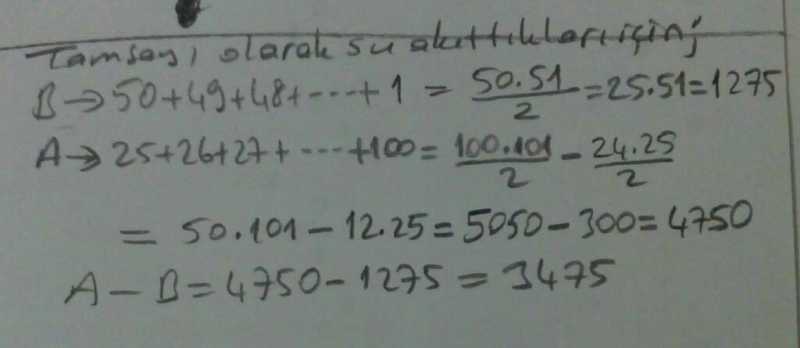 Tamsayı olarak su akıttıkları için;
B → 50+49+48+ ---- + 1 = 50.51/2 = 25.51 = 1275
A → 25+26+27+ ---- +100 = 100.101/2 - 24.25/2
= 50.101 - 12.25 = 5050 - 300 = 4750
A - B = 4750 - 1275 = 3475